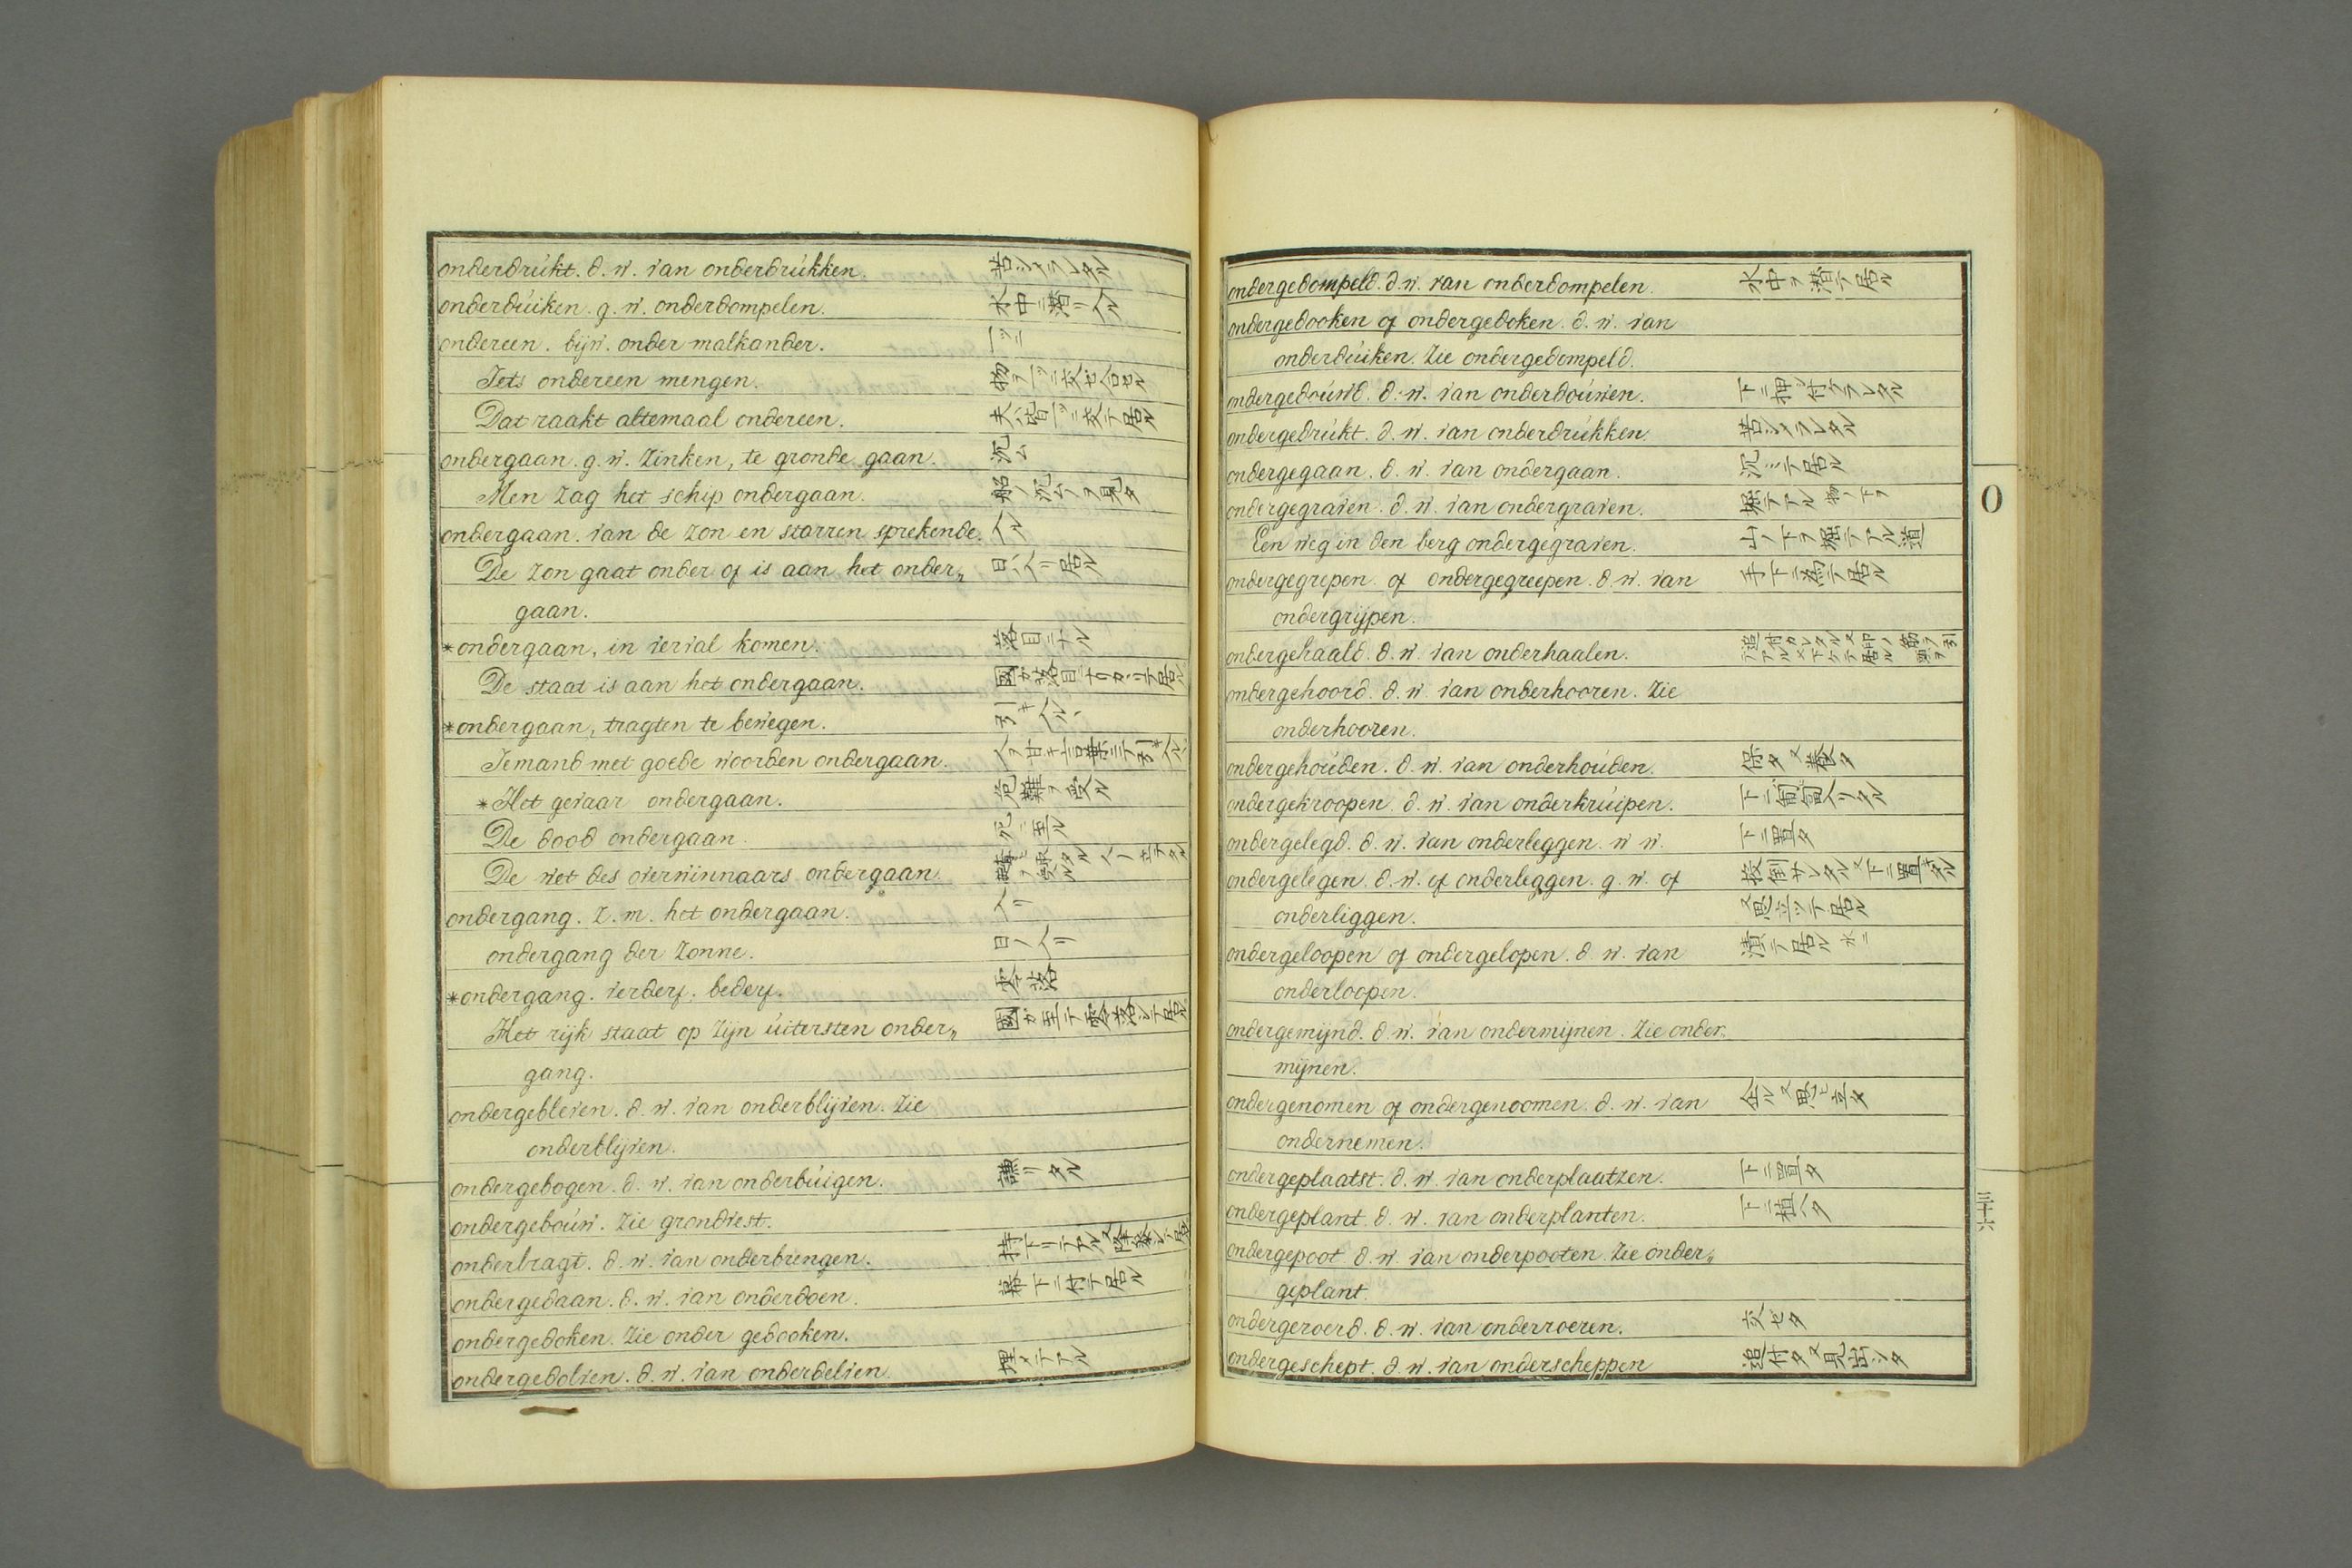 onderdrukt. d. w. van onderdrukken. 苦シメラレタル
onderduiken. g. w. onderdompelen. 水中ニ潜リ入ル
ondereen. bijw. onder malkander. 一ツニ
Iets ondereen mengen. 物ヲ一ツニ交ゼ合セル
Dat raakt altemaal ondereen. 夫ハ皆一ツニ交テ居ル
ondergaan. g. w. zinken, te gronde gaan. 沉ム
Men zag het schip ondergaan. 船ノ沉ムヲ見タ
ondergaan. van de zon en starren sprekende. 入ル
De zon gaat onder of is aan het onder„ 日ハ入リ居ル
gaan.
*ondergaan, in verval komen. 落目ニナル
De staat is aan het ondergaan. 國ガ落目ニナリカヽリテ居ル
*ondergaan, tragten te bewegen. 引キ入ルヽ
Iemand met goede woorden ondergaan. 人ヲ甘キ言葉ニテ引キ入ルヽ
*Het gevaar ondergaan. 危難ヲ受ル
De dood ondergaan. 死ニ至ル
De wet des overwinnaars ondergaan.
ondergang. z. m. het ondergaan. 入リ
ondergang der zonne. 日ノ入リ
*ondergang. verderf. bederf. 零落
Het rijk staat op zijn uitersten onder„ 國ガ至テ零落シテ居ル
gang.
ondergebleven. d. w. van onderblijven. zie
onderblijven.
ondergebogen. d. w. van onderbuigen. 謙リタル
ondergebouw. zie grondvest.
onderbragt. d. w. van onderbrengen.
ondergedaan. d. w. van onderdoen. 幕下ニ付テ居ル
ondergedoken. zie onder gedooken.
ondergedolven. d. w. van onderdelven. 埋メテアル
ondergedompeld. d. w. van onderdompelen. 水中ヲ潜テ居ル
ondergedooken of ondergedoken. d. w. van
onderduiken. zie ondergedompeld.
ondergedouwd. d. w. van onderdouwen. 下ニ押付ケラレタル
ondergedrukt. d. w. van onderdrukken. 苦シメラレタル
ondergegaan. d. w. van ondergaan. 沉ミテ居ル
ondergegraven. d. w. van ondergraven. 堀テアル 物ノ下ヲ
Een weg in den berg ondergegraven. 山ノ下ヲ堀テアル道
ondergegrepen of ondergegreepen. d. w. van 手下ニ為テ居ル
ondergrijpen.
ondergehaald. d. w. van onderhaalen.
ondergehoord. d. w. van onderhooren. zie
onderhooren.
ondergehouden. d. w. van onderhouden. 保タ又養タ
ondergekroopen. d. w. van onderkruipen. 下ニ匍匐入リタル
ondergelegd. d. w. van onderleggen. w w. 下ニ置タ
ondergelegen. d. w. of onderleggen. g. w. of
onderliggen. 又思立ツテ居ル
ondergeloopen of ondergelopen. d. w. van 漬テ居ル 水ニ
onderloopen.
ondergemijnd. d. w. van ondermijnen. zie onder„
mijnen.
ondergenomen of ondergenoomen. d. w. van 企ル又思ヒ立タ
ondernemen.
ondergeplaatst. d. w. van onderplaatzen. 下ニ置タ
ondergeplant. d. w. van onderplanten. 下ニ植ヘタ
ondergepoot. d. w. van onderpooten. zie onder„
geplant.
ondergeroerd. d. w. van onderroeren. 交ゼタ
ondergeschept. d. w. van onderscheppen 追付タ又見出シタ
O
三十六